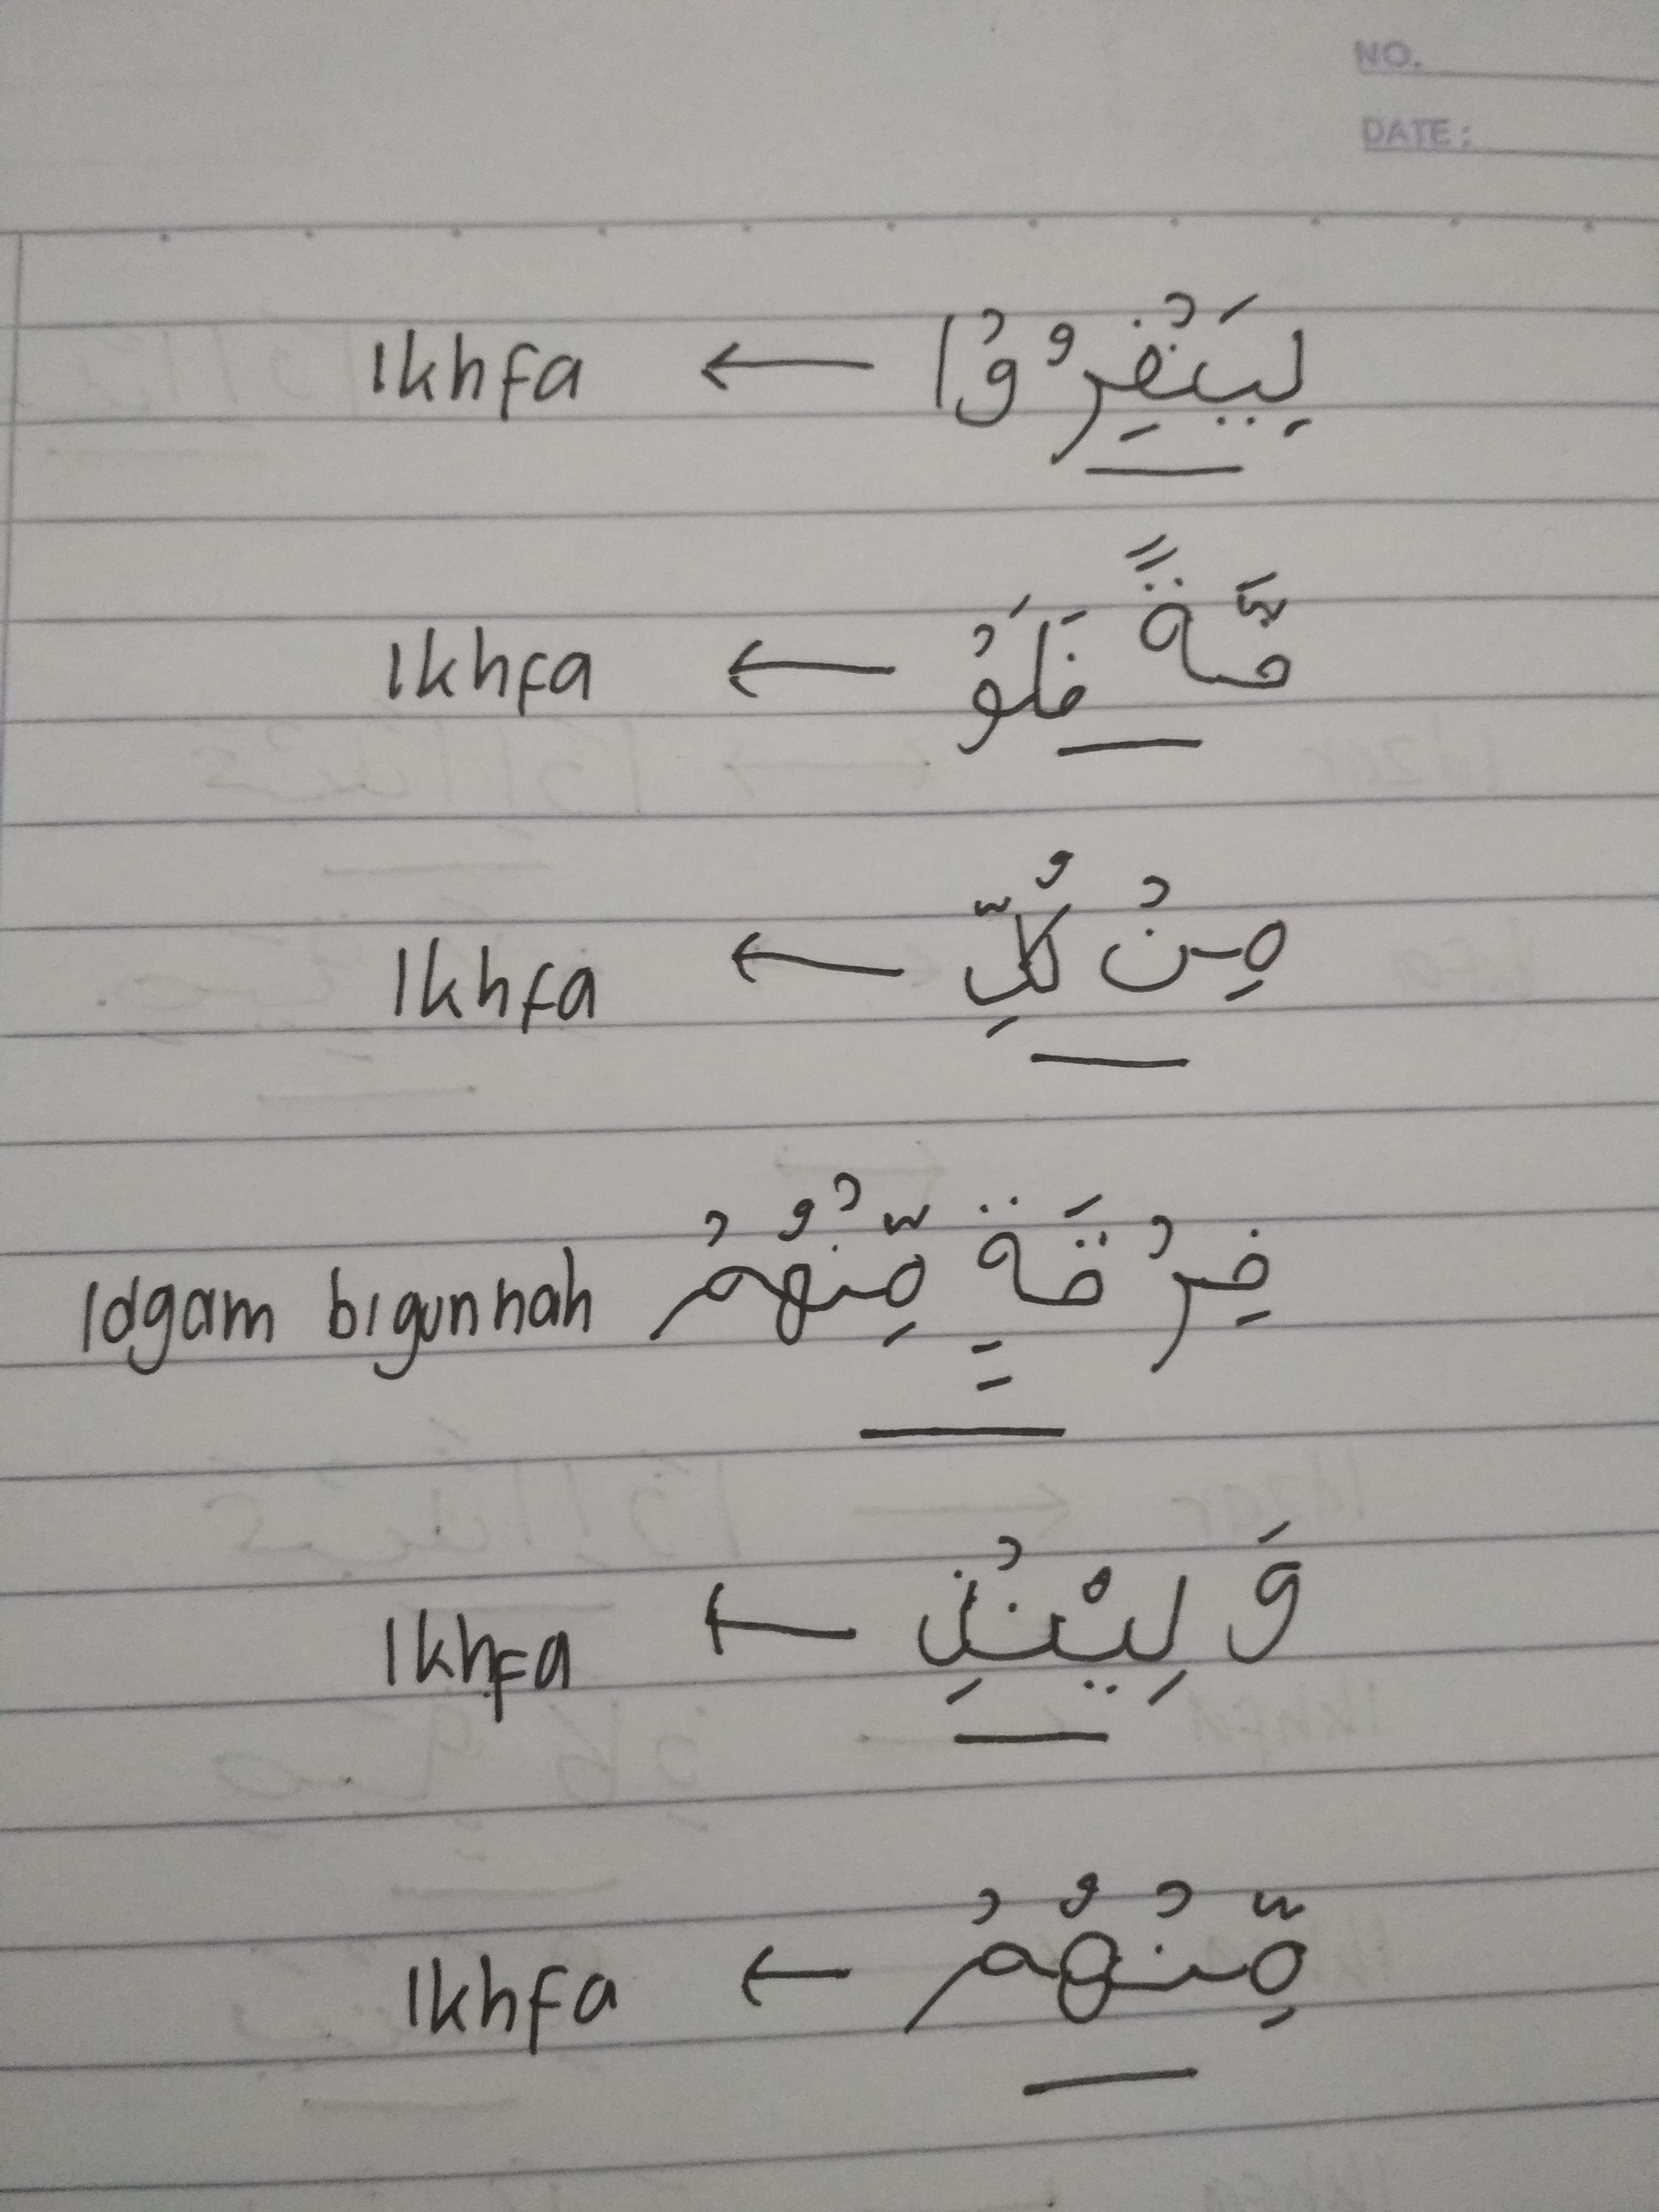 NO.
DATE:
لِيَنْفِرُوْا ← Ikhfa
فَّةً فَلَوْ ← Ikhfa
مِنْ كُلِّ ← Ikhfa
فِرْقَةٍ مِّنْهُمْ Idgam bigunnah
← Ikhfa
مِّنْهُمْ ← Ikhfa